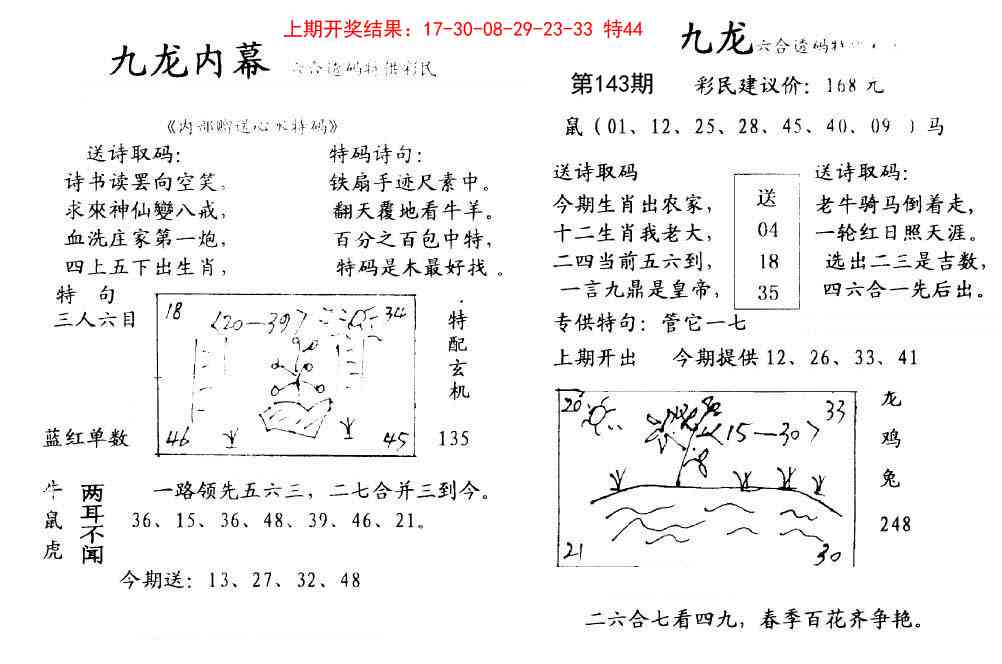 上期开奖结果：17-30-08-29-23-33 特44
九龙内幕
六合透码特供彩民
《内部赠送心水特码》
送诗取码：
诗书读罢向空笑。
求來神仙變八戒，
血洗庄家第一炮，
四上五下出生肖，
特码诗句：
铁扇手迹尺素中。
翻天覆地看牛羊。
百分之百包中特，
特码是木最好找。
特 句
三人六目
蓝红单数
18
<20—39>
34
46
45
特配玄机
135
牛鼠虎
两耳不闻
一路领先五六三，二七合并三到今。
36、15、36、48、39、46、21。
今期送：13、27、32、48
九龙
六合透码
第143期
彩民建议价：168元
鼠（01、12、25、28、45、40、09 ）马
送诗取码
今期生肖出农家，
十二生肖我老大，
二四当前五六到，
一言九鼎是皇帝，
送
04
18
35
送诗取码：
老牛骑马倒着走，
一轮红日照天涯。
选出二三是吉数，
四六合一先后出。
专供特句：管它一七
上期开出 今期提供12、26、33、41
20
33
<15—30>
21
30
龙
鸡
兔
248
二六合七看四九，春季百花齐争艳。